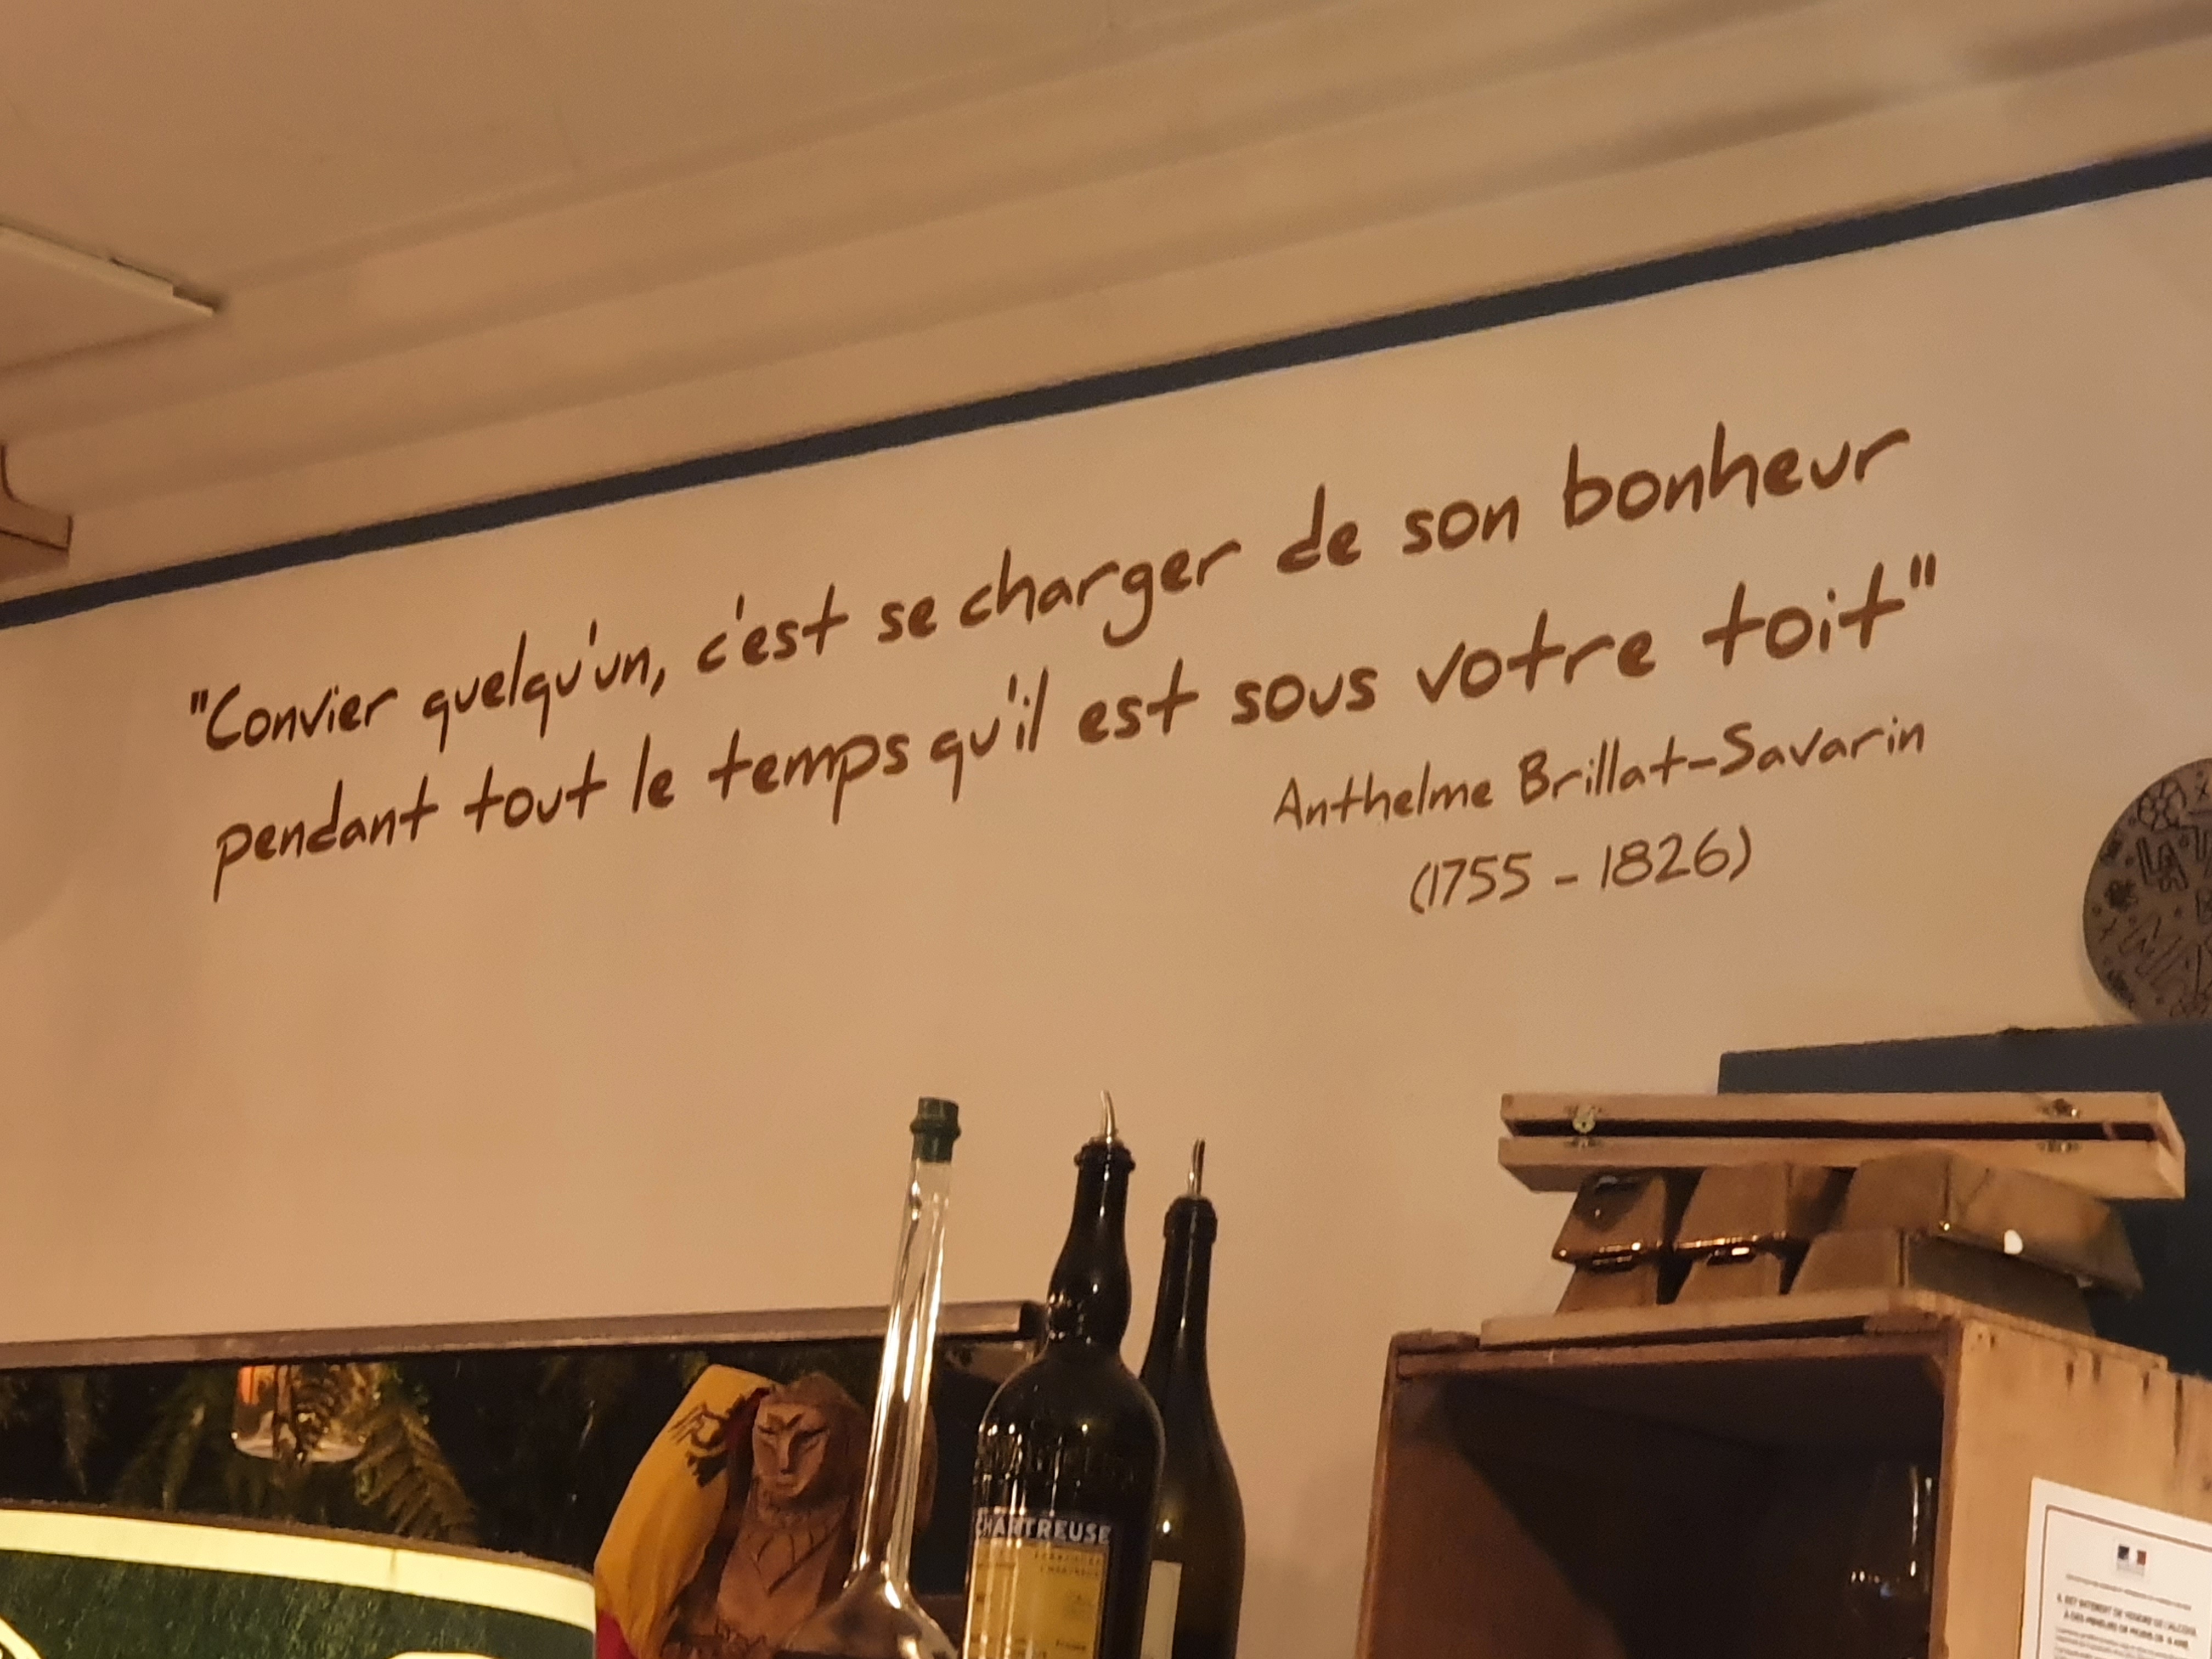 "Convier quelqu'un, c'est se charger de son bonheur
pendant tout le temps qu'il est sous votre toit"
Anthelme Brillat-Savarin
(1755 - 1826)
LA
CHARTREUSE
IL EST INTERDIT DE VENDRE DE L'ALCOOL
À DES MINEURS DE MOINS DE 18 ANS.